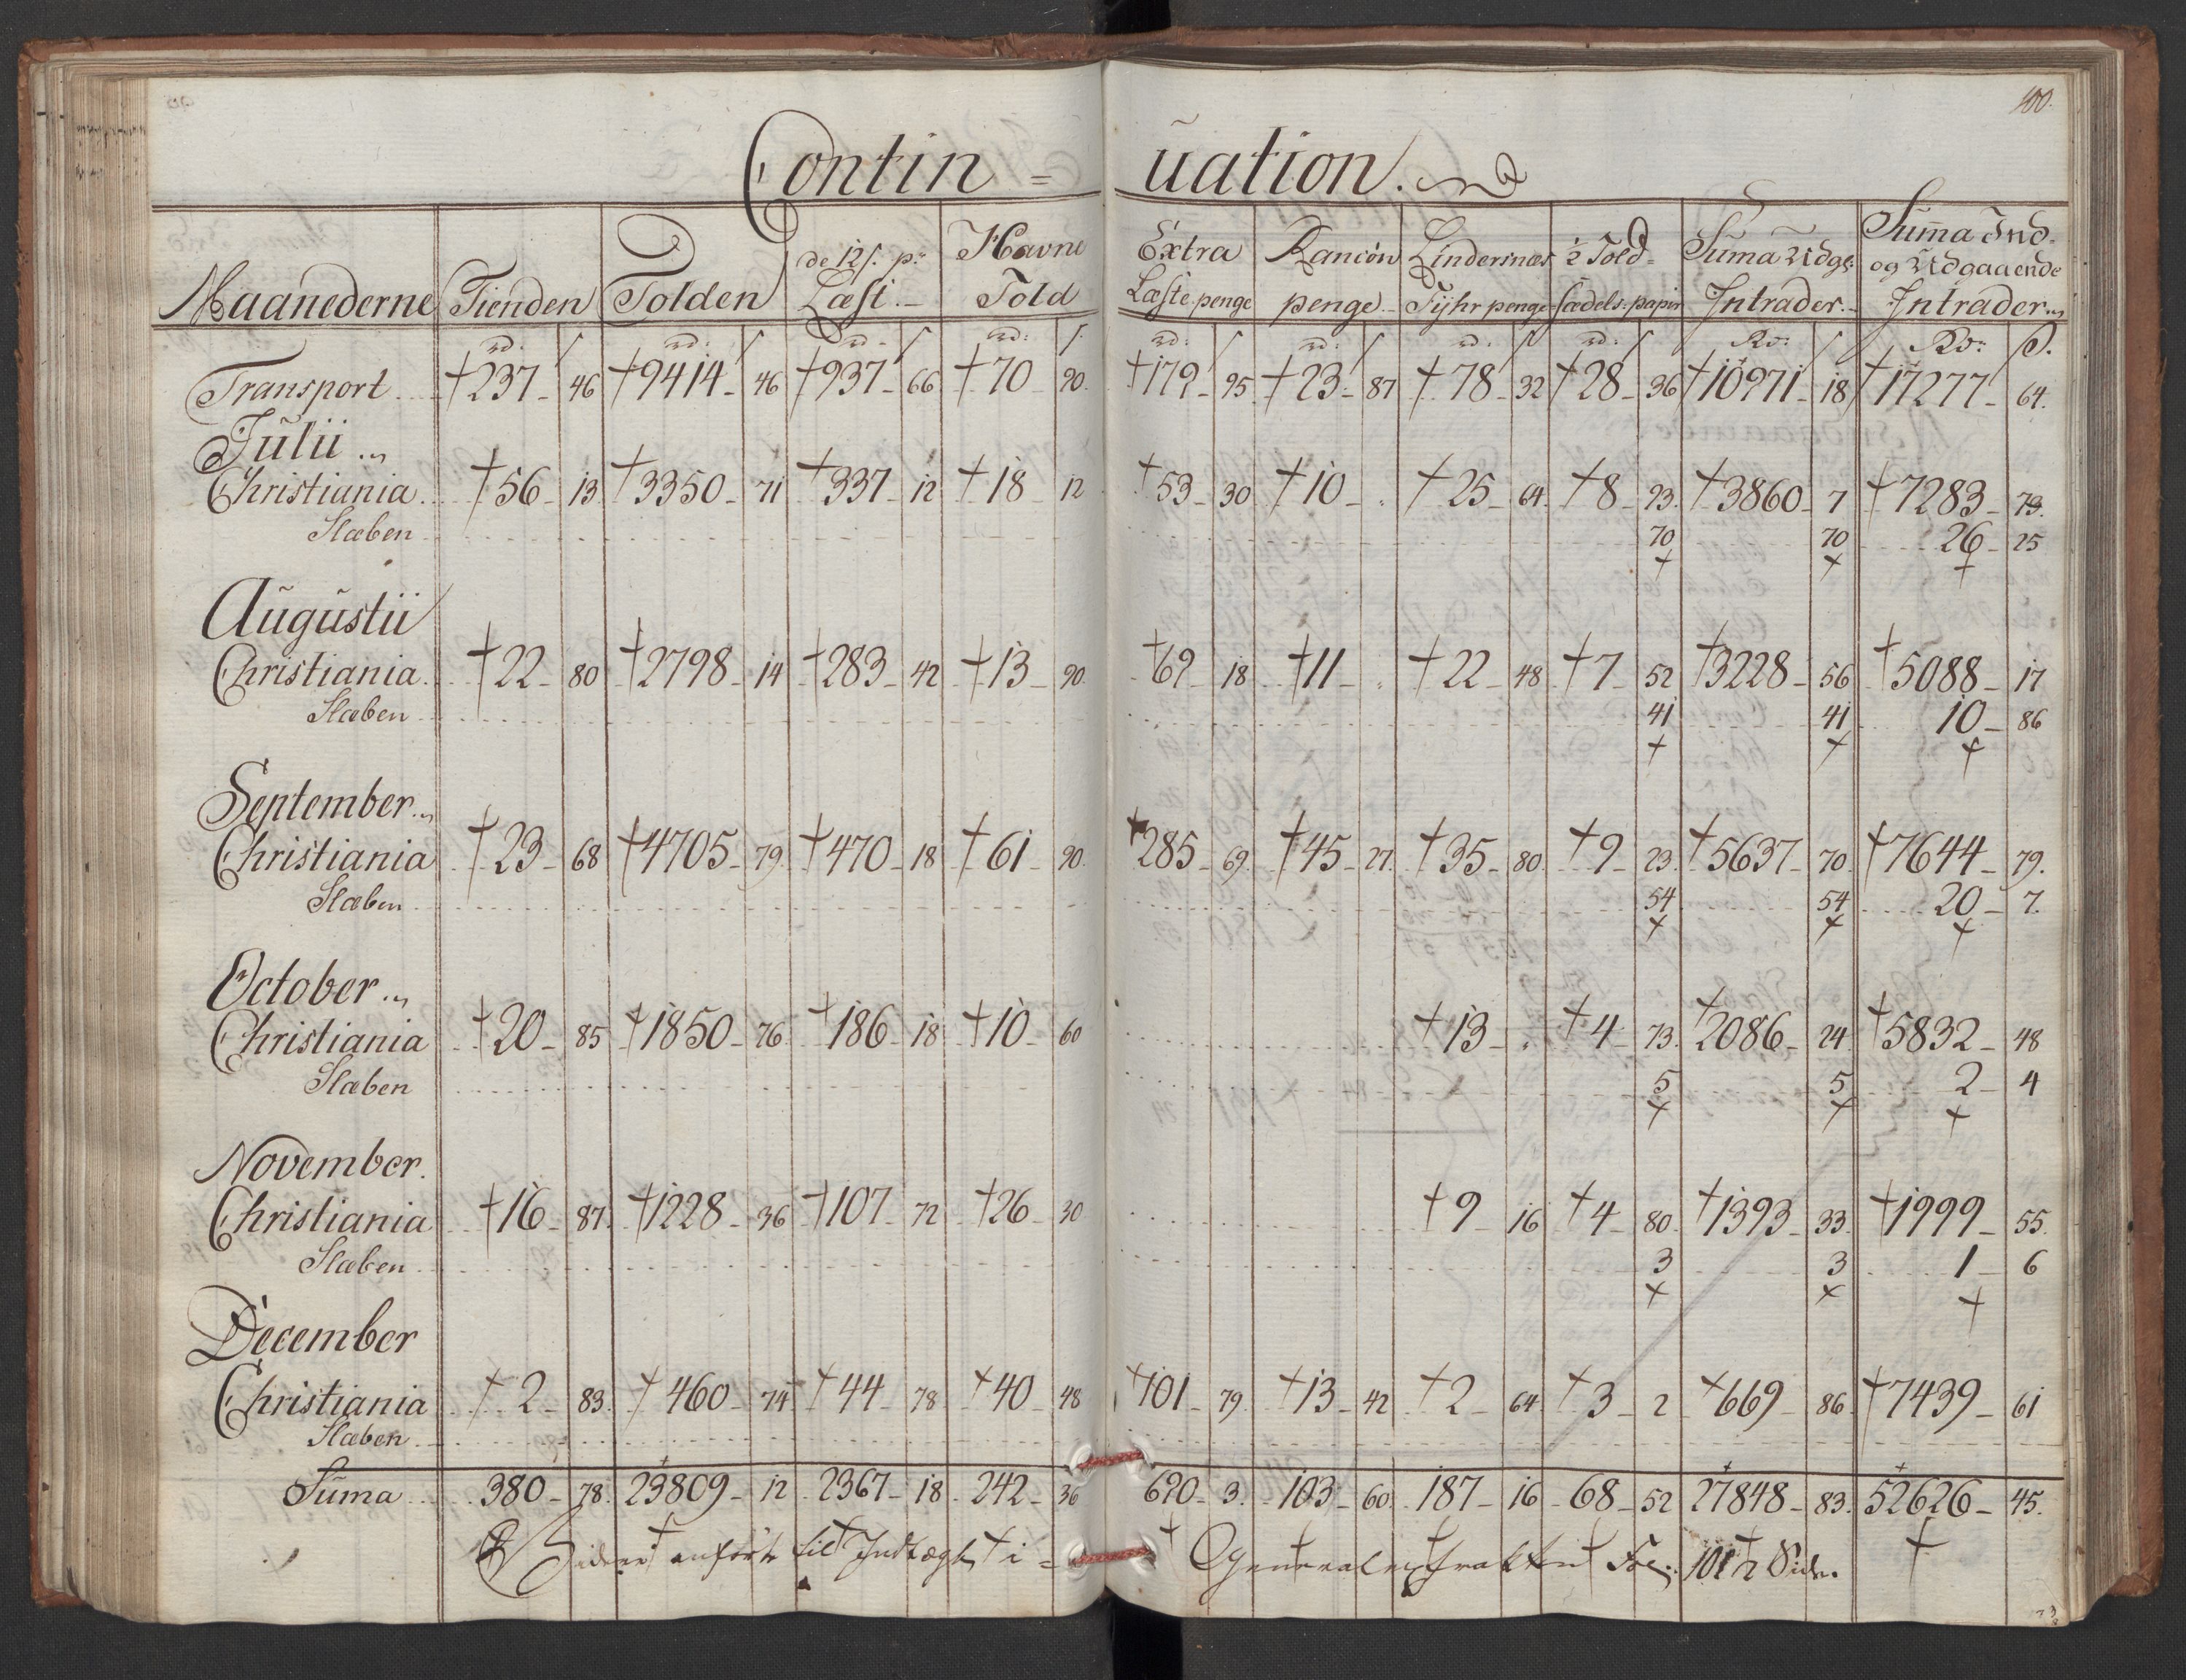 100.
Contin = uation.
Maanederne Tienden Tolden de 12 s. pr Læst. Havne Told Extra Læste penge Rancion penge Lindernæs Fyhr penge ½ Told-sædels-papir Suma Udg: Intrader. Suma Ind- og Udgaaende Intrader
rd. s rd: s rd: s rd: s. rd: s rd: s rd: s rd: s Rd: s Rd: s.
Transport †237 46 †9414 46 †937 66 †70 90. †179 95 †23 87 †78 32 †28 36 †10971 18 †17277 64.
Julii
Christiania †56 13 †3350 71 †337 12 †18 12 †53 30 †10 . †25 64 †8 23 †3860 7 †7283 79.
Slæben 70 70 26 25
Augustii
Christiania †22 80 †2798 14 †283 42 †13 90. †69 18 †11 . †22 48 †7 52 †3228 56 †5088 17
Slæben 41 41 10 86
September
Christiania †23 68 †4705 79 †470 18 †61 90. †285 69. †45 27. †35 80 †9 23. †5637 70. †7644 79.
Slæben 54 54 20 7.
October
Christiania †20 85 †1850 76 †186 18 †10 60 †13 . †4 73. †2086 24 †5832 48
Slæben 5 5 2 4
November.
Christiania †16 87. †1228 36 †107 72 †26 30 †9 16 †4 80. †1393 33. †1999 55.
Slæben 3 3 1 6
December
Christiania †2 83. †460 74 †44 78 †40 48 †101 79. †13 42 †2 64 †3 2 †669 86. †7439 61
Slæben
Suma 380 78. 23809 12 2367 18 242 36 690 3. 103 60. 187 16 68 52 27848 83. 52626 45.
anført til Indtægt i = General extrakten Fol: 101 Side.